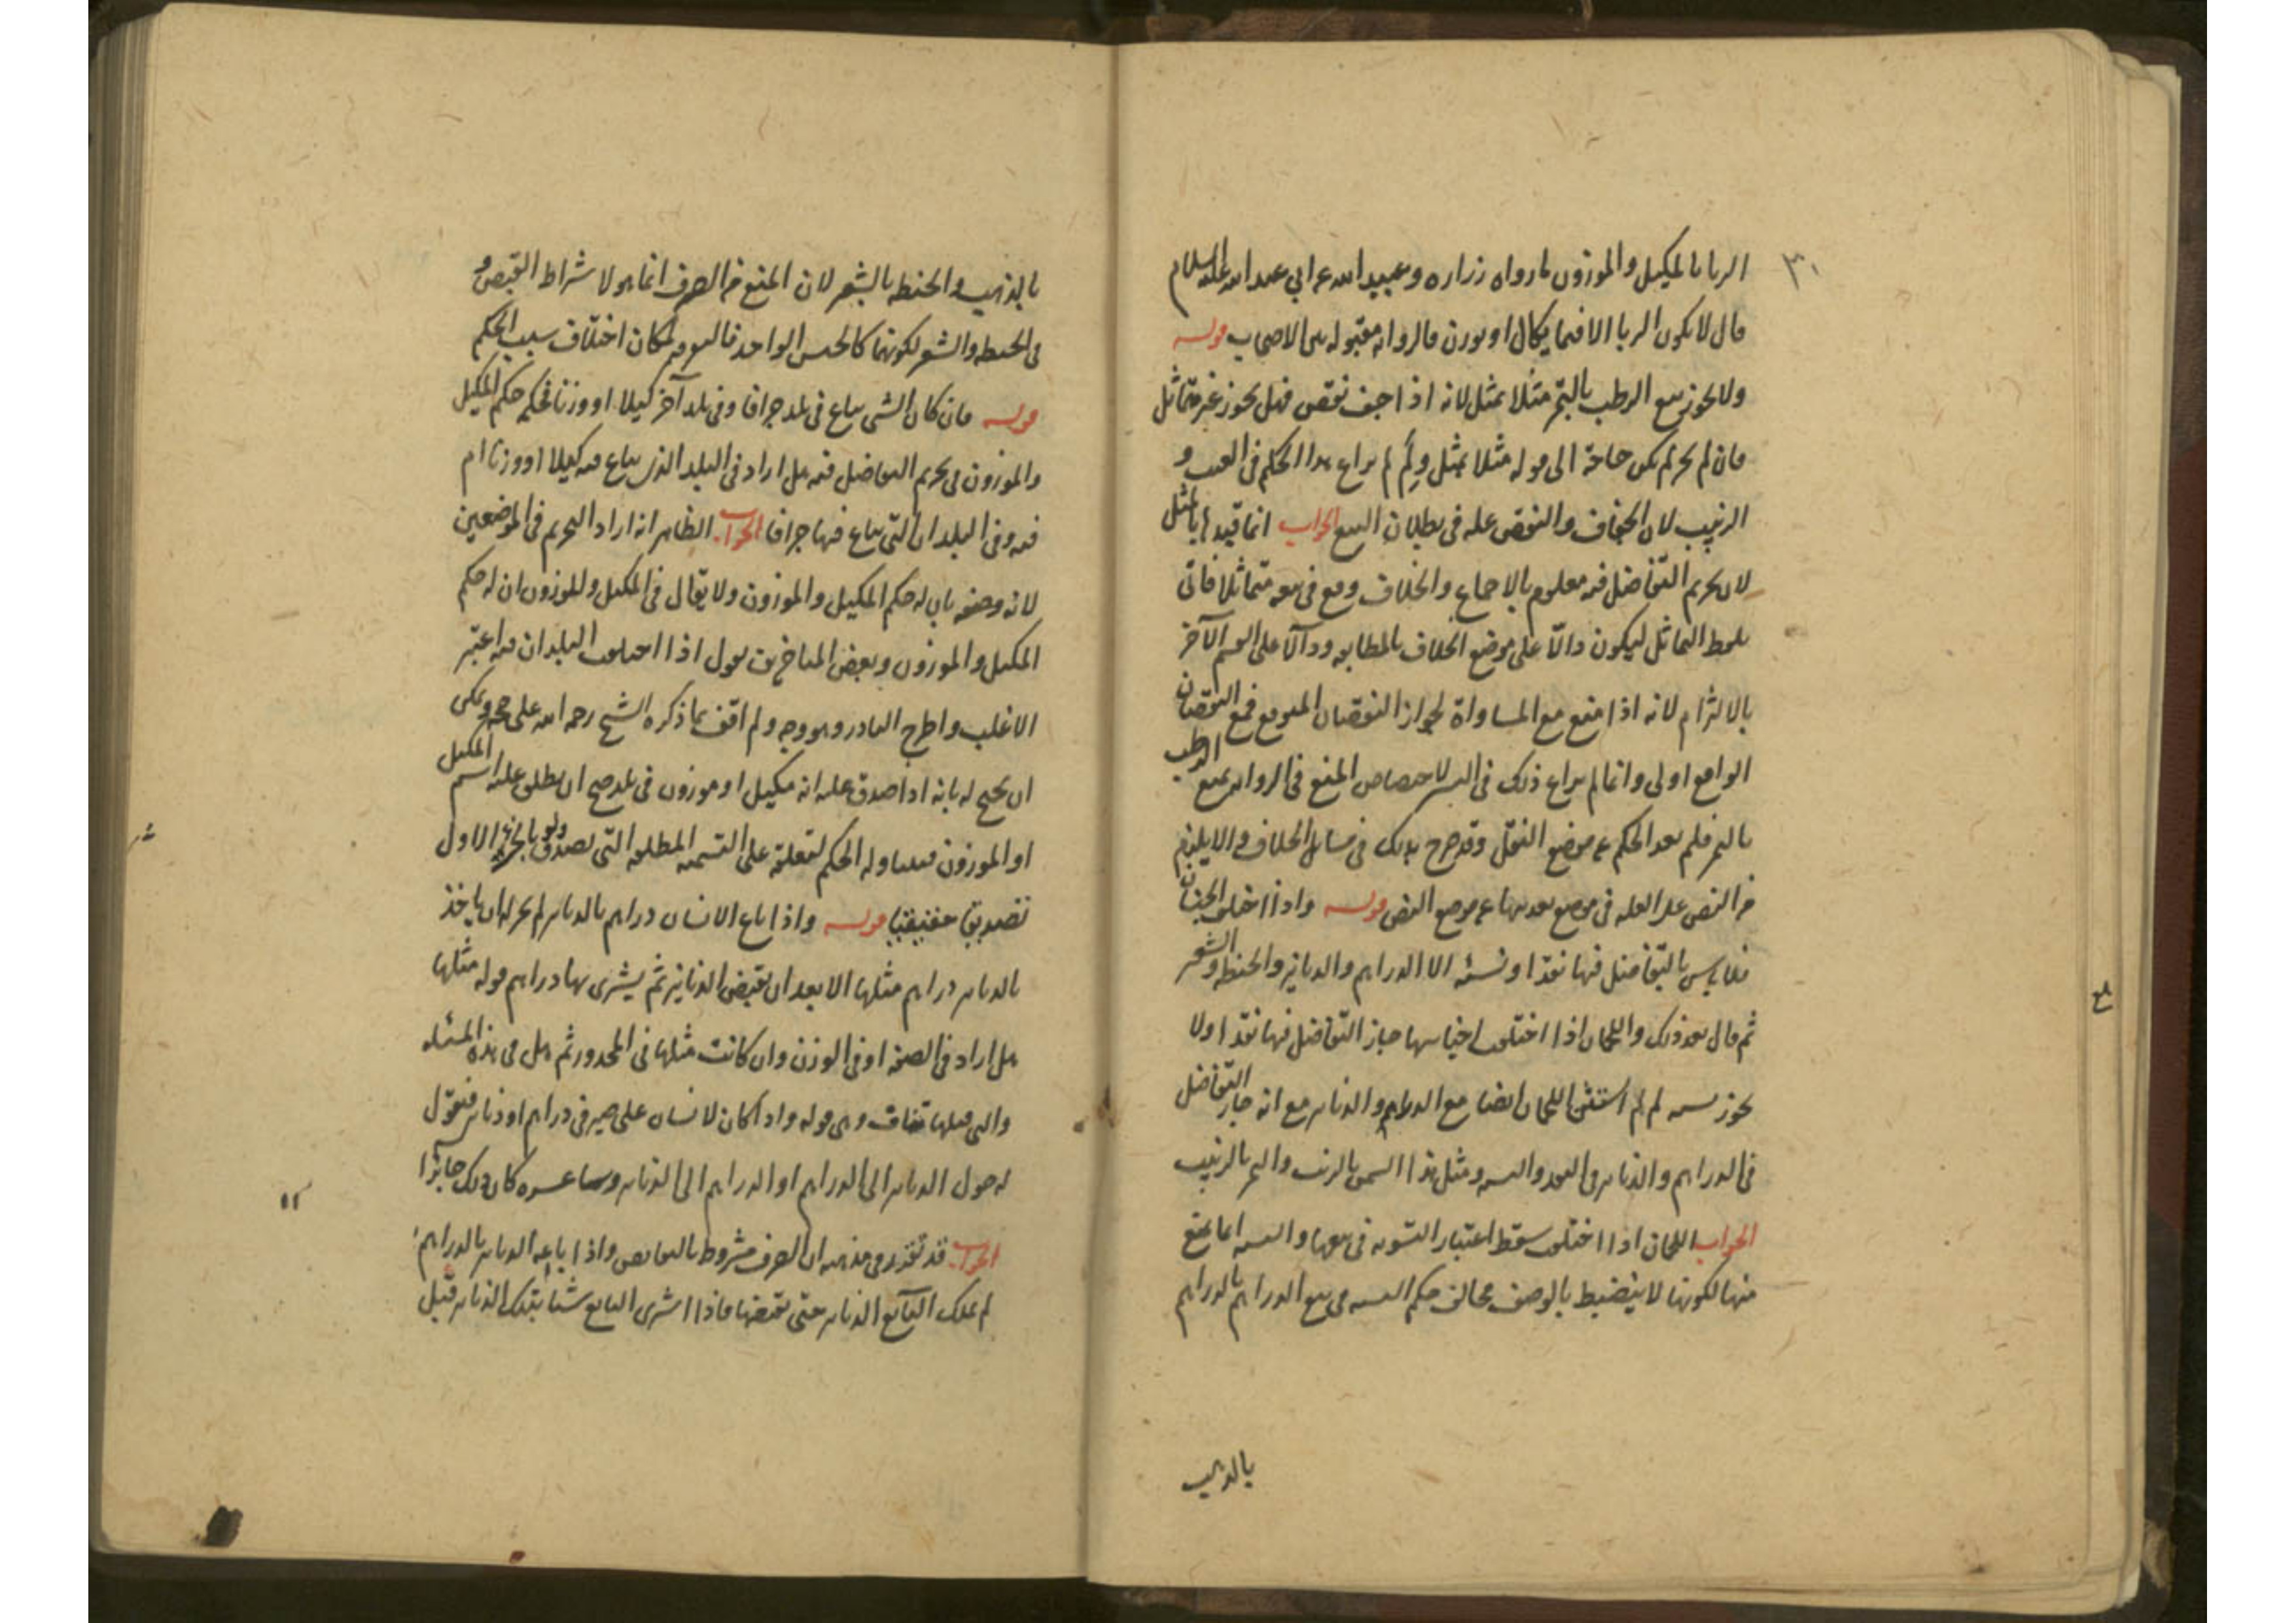 ٣٠
الربا بالمكيل والموزون ما رواه زراره وعبيد الله عن ابي عبد الله عليه السلام
قال لا يكون الربا الا فيما يكال او يوزن فالروايه مقبوله بين الاصحاب قوله
ولا يجوز بيع الرطب بالتمر مثلا بمثل لانه اذا جف نقص فهل يجوز غير متماثل
فان لم يحرم لم يكن حاجة الى قوله مثلا بمثل ولِمَ لم يراع هذا الحكم في العنب و
الزبيب لان الجفاف والنقص عله في بطلان البيع الجواب انما قيد بالمثل
لان تحريم التفاضل فيه معلوم بالاجماع والخلاف وقع في بيعه متماثلا فاتى
بلفظ التماثل ليكون دالّا على موضع الخلاف بالمطابقه ودالّا على القسم الآخر
بالالتزام لانه اذا منع مع المساواة لجواز النقصان المتوقع فمع النقصان
الواقع اولى وانما لم يراع ذلك في لاختصاص المنع في الروايه ببيع الرطب
بالتمر فلم يعد الحكم عن موضع النقل وقد صرح بذلك في مسايل الخلاف ولا يلزم
من النص على العله في موضع تعديتها عن موضع النص قوله واذا اختلف الجنسان
فلا باس بالتفاضل فيها نقدا ونسئه الا الدراهم والدنانير والحنطه والشعير
ثم قال بعد ذلك واللحمان اذا اختلف اجناسها جاز التفاضل فيها نقدا ولا
يجوز نسيه لم لم استثنى اللحمان ايضا مع الدراهم والدنانير مع انه جاز التفاضل
في الدراهم والدنانير في النقد والنسيه ومثل هذا السمن بالزيت والتمر بالزبيب
الجواب اللحمان اذا اختلف سقط اعتبار التسويه في بيعها والنسيه انما يمنع
منها لكونها لا ينضبط بالوصف مخالف حكم النسيه في بيع الدراهم بالدراهم
بالذهب
بالذهب والحنطه بالشعير لان المنع من الصرف انما هو لاشتراط القبض و
في الحنطه والشعير لكونهما كالجنس الواحد فالبيع فيه لمكان اختلاف سبب الحكم
قوله فان كان الشي يباع في بلد جزافا وفي بلد آخر كيلا او وزنا فحكمه حكم المكيل
والموزون في تحريم التفاضل فيه هل اراد في البلد الذي يباع فيه كيلا او وزنا ام
فيه وفي البلدان التي يباع فيها جزافا الجواب الظاهر انه اراد التحريم في الموضعين
لانه وصفه بان له حكم المكيل والموزون ولا يقال في المكيل والموزون ان له حكم
المكيل والموزون وبعض المتاخرين يقول اذا اختلفت البلدان فيه اعتبر
الاغلب واطرح النادر وهو وجه ولم اقف بما ذكره الشيخ رحمه الله على حجه ويمكن
ان يحتج له بانه اذا صدق عليه انه مكيل او موزون في بلد صح ان يطلق عليه اسم المكيل
او الموزون فيتناوله الحكم لتعلقه على التسميه المطلقه التي تصدق ولو بالجزء الاول
تصديقا حقيقيا قوله واذا باع الانسان دراهم بالدنانير لم يجز له ان ياخذ
بالدنانير دراهم مثلها الا بعد ان يقبض الدنانير ثم يشترى بها دراهم قوله مثلها
هل اراد في الصفه او في الوزن وان كانت مثلها في المحذور ثم هل في هذه المسئله
والتي قبلها تناف وهي قوله واذا كان لانسان على صيرفي دراهم او دنانير فيقول
له حول الدنانير الى الدراهم او الدراهم الى الدنانير وساعره كان ذلك جايزا
الجواب قد تقرر في مذهبه ان الصرف مشروط بالتقابض واذا باعه الدنانير بالدراهم
لم يملك البائع الدنانير حتى يقبضها فاذا اشترى البايع شئا بتلك الدنانير قبل